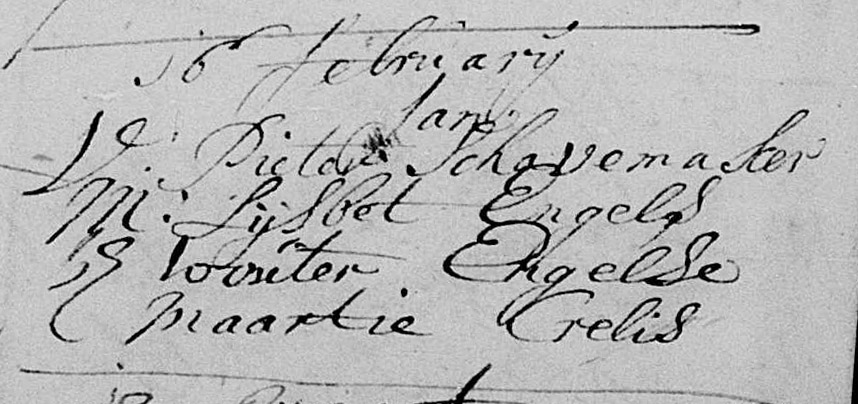 16 february
Jan
V: Pieter Schavemaker
M: Lijsbet Engels
G Wouter Engelse
Maartie Crelis